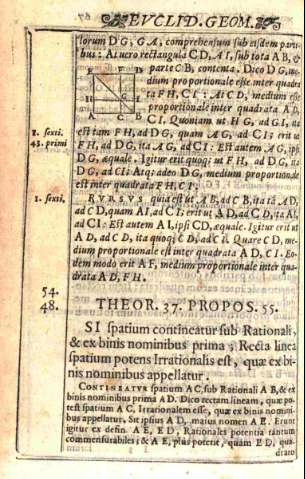 EVCLID. GEOM.
lorum DG, GA, comprehensum sub eisdem parti-
bus: At vero rectangula CD, AI, sub tota AB, &
parte CB, contenta. Dico DG, me-
dium proportionale esse inter quadra
ta FH, CI: At CD, medium esse
proportionale inter quadrata AD,
CI. Quoniam ut HG, ad GI, ita
est tam FH, ad DG, quam AG, ad CI; erit ut
FH, ad DG, ita AG, ad CI: Est autem AG, ipsi
DG, æquale. Igitur erit quoque ut FH, ad DG, ita
DG, ad CI: Atque adeo DG, medium proportionale
est inter quadrata FH, CI.
RVRSVS quia est ut AB, ad CB, ita tā AD,
ad CD, quam AI, ad CI; erit ut AD, ad CD, ita AI,
ad CI: Est autem AI, ipsi CD, æquale. Igitur erit ut
AD, ad CD, ita quoque CD, ad CI. Quare CD, me-
dium proportionale est inter quadrata AD, CI. Eo-
dem modo erit AF, medium proportionale inter qua-
drata AD, FH.
1. sexti.
43. primi
1. sexti.
54.
48.
THEOR. 37. PROPOS. 55.
SI spatium contineatur sub Rationali,
& ex binis nominibus prima; Recta linea
spatium potens Irrationalis est, quæ ex bi-
nis nominibus appellatur.
CONTINEATVR spatium AC, sub Rationali AB, & ex
binis nominibus prima AD. Dico rectam lineam, quæ po-
test spatium AC, Irrationalem esse, quæ ex binis nomini-
bus appellatur. Sit ipsius AD, maius nomen AE. Erunt
igitur ex defin. AE, ED, Rationales potentia tantum
commensurabiles; & AE, plus poterit, quam ED, qua-
drato